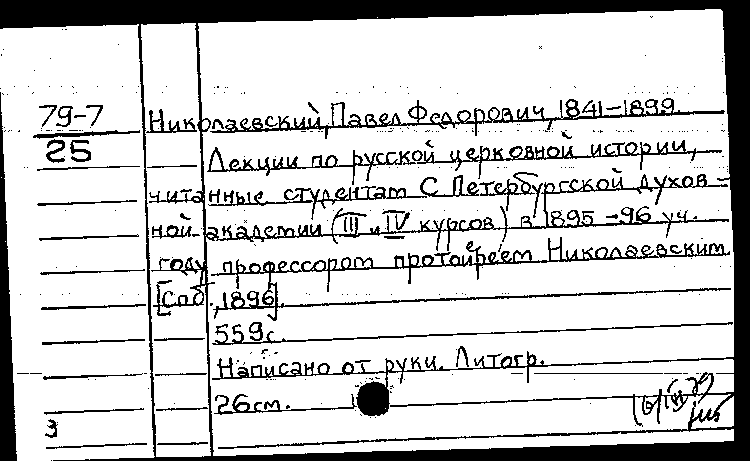 79-7 Николаевский, Павел Федорович, 1841-1899.
25 Лекции по русской церковной истории,
читанные студентам С Петербургской духов-
ной академии (III и IV курсов) в 1895-96 уч.
году профессором протоиреем Николаевским
[Спб., 1896].
559с.
Написано от руки. Литогр.
26см.
3